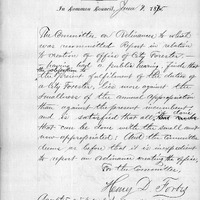 In Common Council, June 7, 1875
The Committee on Ordinance to whom
was recommitted Report in relation
to creation of office of City Forester
having had a public hearing find that
the present fulfilment of the duties
of a City Forester, lies more against the
smallness of the annual appropriation
than against the present incumbent;
and is satisfied that all is done
that can be done with the small amt
now appropriated; and the Committee
deems as before that it is inexpedient
to report an Ordinance creating the office.
For the Committee,
Henry D.